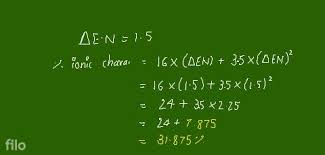 ΔE·N = 1.5
% ionic charac. = 16 × (ΔEN) + 3.5 × (ΔEN)²
= 16 × (1.5) + 3.5 × (1.5)²
= 24 + 35 × 2.25
= 24 + 7.875
= 31.875 %
filo